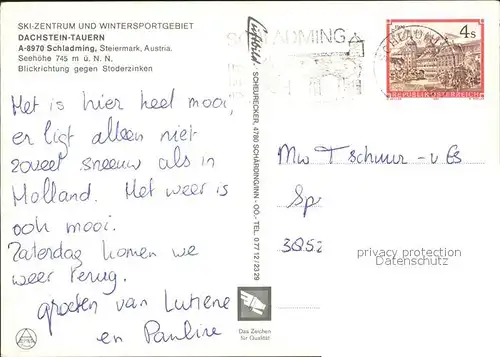 SKI-ZENTRUM UND WINTERSPORTGEBIET
DACHSTEIN-TAUERN
A-8970 Schladming, Steiermark, Austria.
Seehöhe 745 m ü. N. N.
Blickrichtung gegen Stoderzinken
Het is hier heel mooi,
er ligt alleen niet
zoveel sneeuw als in
Holland. Het weer is
ook mooi.
Zaterdag komen we
weer terug.
groeten van Lutiene
en Pauline
Luftbild
SCHEURECKER, 4780 SCHÄRDING/INN - OÖ. - TEL. 0 77 12 / 23 29
SCHLADMING
4 S
REPUBLIK ÖSTERREICH
Mw Tschuur - v Es
Sp
3852
privacy protection
Datenschutz
Das Zeichen
für Qualität